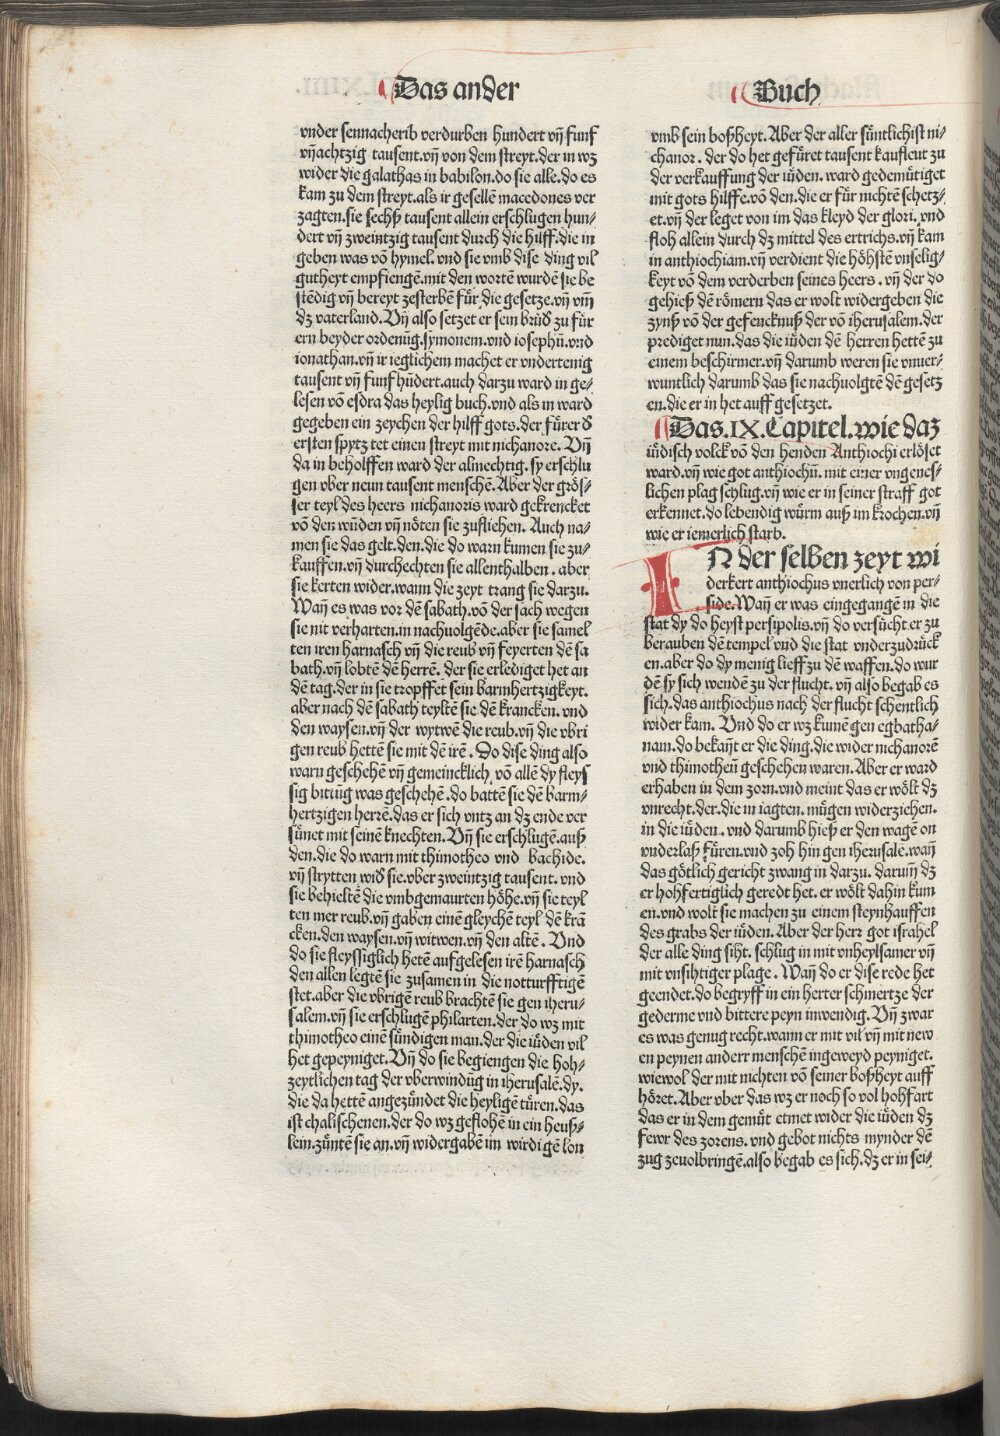 Das ander
Buch
vnder sennacherib verdurben hundert vñ funf
vñachtzig tausent.vñ von dem streyt.der in wz
wider die galathas in babilon.do sie alle.do es
kam zu dem streyt.als ir gesellē macedones ver
zagten.sie sechß tausent allein erschlugen hun-
dert vñ zweintzig tausent durch die hilff.die in
geben was vō hymel.vnd sie vmb dise ding vil
gutheyt empfiengē.mit den wortē wurdē sie be
stēdig vñ bereyt zesterbē fuͤr die gesetze.vñ vm̄
dz vaterland.Vñ also setzet er sein bruͤd zu fuͤr
ern beyder ordenūg.symonem.vnd iosephū.vnd
ionathan.vñ ir ieglichem machet er vndertenig
tausent vñ funf hūdert.auch darzu ward in ge-
lesen vō esdra das heylig buch.vnd als in ward
gegeben ein zeychen der hilff gots.der fuͤrer d
ersten spytz tet einen streyt mit nichanore. Vñ
da in beholffen ward der almechtig.sy erschlu
gen vber neun tausent menschē.Aber der groͤs-
ser teyl des heers nichanoris ward gekrencket
vō den wūden vñ noͤten sie zufliehen. Auch na-
men sie das gelt.den.die do warn kumen sie zu-
kauffen.vñ durchechten sie allenthalben. aber
sie kerten wider.wann die zeyt trang sie darzu.
Wañ es was vor dē sabath.vō der sach wegen
sie nit verharten.in nachuolgēde.aber sie samel
ten iren harnasch vñ die reub vñ feyerten dē sa
bath.vñ lobtē dē herrē. der sie erlediget het an
dē tag.der in sie tropffet sein barmhertzigkeyt.
aber nach dē sabath teyltē sie dē krancken. vnd
den waysen.vñ der wytwē die reub.vñ die vbri
gen reub hettē sie mit dē irē. Do dise ding also
warn geschehē vñ gemeincklich vō allē dy fleys
sig bittūg was geschehē.do battē sie dē barm-
hertzigen herrē.das er sich vntz an dz ende ver
suͤnet mit seinē knechten. Vñ sie erschlugē.auß
den.die do warn mit thimotheo vnd bachide.
vñ strytten wid sie.vber zweintzig tausent. vnd
sie behieltē die vmbgemaurten hoͤhe.vñ sie teyl
ten mer reub.vñ gaben einē gleychē teyl dē krā
cken.den waysen.vñ witwen.vñ den altē. Vnd
do sie fleyssiglich hetē aufgelesen irē harnasch
den allen legtē sie zusamen in die notturfftigē
stet.aber die vbrigē reub brachtē sie gen iheru-
salem.vñ sie erschlugē philarten.der do wz mit
thimotheo einē suͤndigen man.der die iuͤden vil
het gepeyniget. Vñ do sie begiengen die hoh-
zeytlichen tag der vberwindūg in iherusalē.dy.
die da hettē angezuͤndet die heyligē tuͤren.das
ist chalischenen.der do wz geflohē in ein heuß-
lein.zuͤntē sie an.vñ widergabē im wirdigē lon
vmb sein boßheyt. Aber der aller suͤntlichist ni-
chanor. der do het gefuͤret tausent kaufleut zu
der verkauffung der iuͤden. ward gedemuͤtiget
mit gots hilffe.vō den.die er fuͤr nichtē schetz-
et.vñ der leget von im das kleyd der glori. vnd
floh allein durch dz mittel des ertrichs.vñ kam
in anthiochiam.vñ verdient die hoͤhstē vnselig-
keyt vō dem verderben seines heers. vñ der do
gehieß dē roͤmern das er wolt widergeben die
zynß vō der gefencknuß der vō iherusalem.der
prediget nun.das die iuͤden dē herren hettē zu
einem beschirmer.vñ darumb weren sie vnuer-
wuntlich darumb das sie nachuolgtē dē gesetz
en.die er in het auff gesetzet.
Das.IX.Capitel.wie daz
iuͤdisch volck vō den henden Anthiochi erloͤset
ward.vñ wie got anthiochū. mit einer vngenes-
lichen plag schlug.vñ wie er in seiner straff got
erkennet.do lebendig wuͤrm auß im krochen.vñ
wie er iemerlich starb.
IN der selben zeyt wi
derkert anthiochus vnerlich von per-
side.Wañ er was eingegangē in die
stat dy do heyst persipolis.vñ do versuͤcht er zu
berauben dē tempel vnd die stat vnderzudruͤck
en.aber do dy menig lieff zu dē waffen.do wur
dē sy sich wendē zu der flucht. vñ also begab es
sich.das anthiochus nach der flucht schentlich
wider kam. Vnd do er wz kumē gen egbatha-
nam.do bekañt er die ding.die wider nichanorē
vnd thimotheū geschehen waren.Aber er ward
erhaben in dem zorn.vnd meint das er woͤlt dz
vnrecht.der.die in iagten. muͤgen widerziehen.
in die iuͤden. vnd darumb hieß er den wagē on
vnderlaß fuͤren.vnd zoh hin gen iherusalē.wañ
das goͤtlich gericht zwang in darzu. darum̄ dz
er hohfertiglich geredt het. er woͤlt dahin kum
en.vnd wolt sie machen zu einem steynhauffen
des grabs der iuͤden. Aber der herr got israhel
der alle ding siht. schlug in mit vnheylsamer vñ
mit vnsihtiger plage. Wañ do er dise rede het
geendet.do begryff in ein herter schmertze der
gederme vnd bittere peyn inwendig. Vñ zwar
es was genug recht.wann er mit vil vñ mit new
en peynen anderr menschē ingeweyd peyniget.
wiewol der mit nichten vō seiner boßheyt auff
hoͤret. Aber vber das wz er noch so vol hohfart
das er in dem gemuͤt etmet wider die iuͤden dz
fewr des zorens. vnd gebot nichts mynder dē
zug zeuolbringē.also begab es sich.dz er in sei-